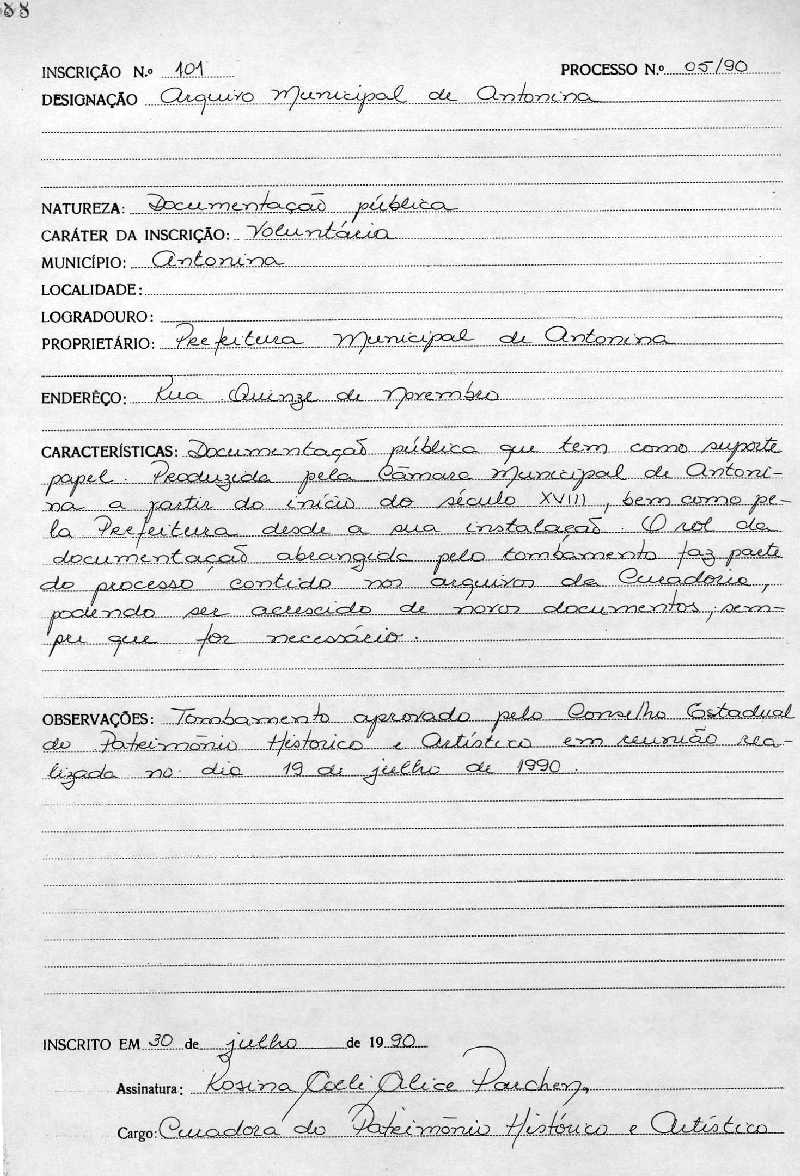 88
INSCRIÇÃO N.º 101 PROCESSO N.º 05/90
DESIGNAÇÃO Arquivo Municipal de Antonina
NATUREZA: Documentação pública
CARÁTER DA INSCRIÇÃO: Voluntária
MUNICÍPIO: Antonina
LOCALIDADE:
LOGRADOURO:
PROPRIETÁRIO: Prefeitura Municipal de Antonina
ENDERÊÇO: Rua Quinze de Novembro
CARACTERÍSTICAS: Documentação pública que tem como suporte
papel. Produzida pela Câmara Municipal de Antoni-
na a partir do início do século XVIII, bem como pe-
la Prefeitura desde a sua instalação. O rol da
documentação abrangida pelo tombamento faz parte
do processo contido nos arquivos da Curadoria,
podendo ser acrescido de novos documentos, sem-
pre que for necessário.
OBSERVAÇÕES: Tombamento aprovado pelo Conselho Estadual
do Patrimônio Histórico e Artístico em reunião rea-
lizada no dia 19 de julho de 1990.
INSCRITO EM 30 de julho de 1990
Assinatura: Rosina Coeli Alice Parchen
Cargo: Curadora do Patrimônio Histórico e Artístico